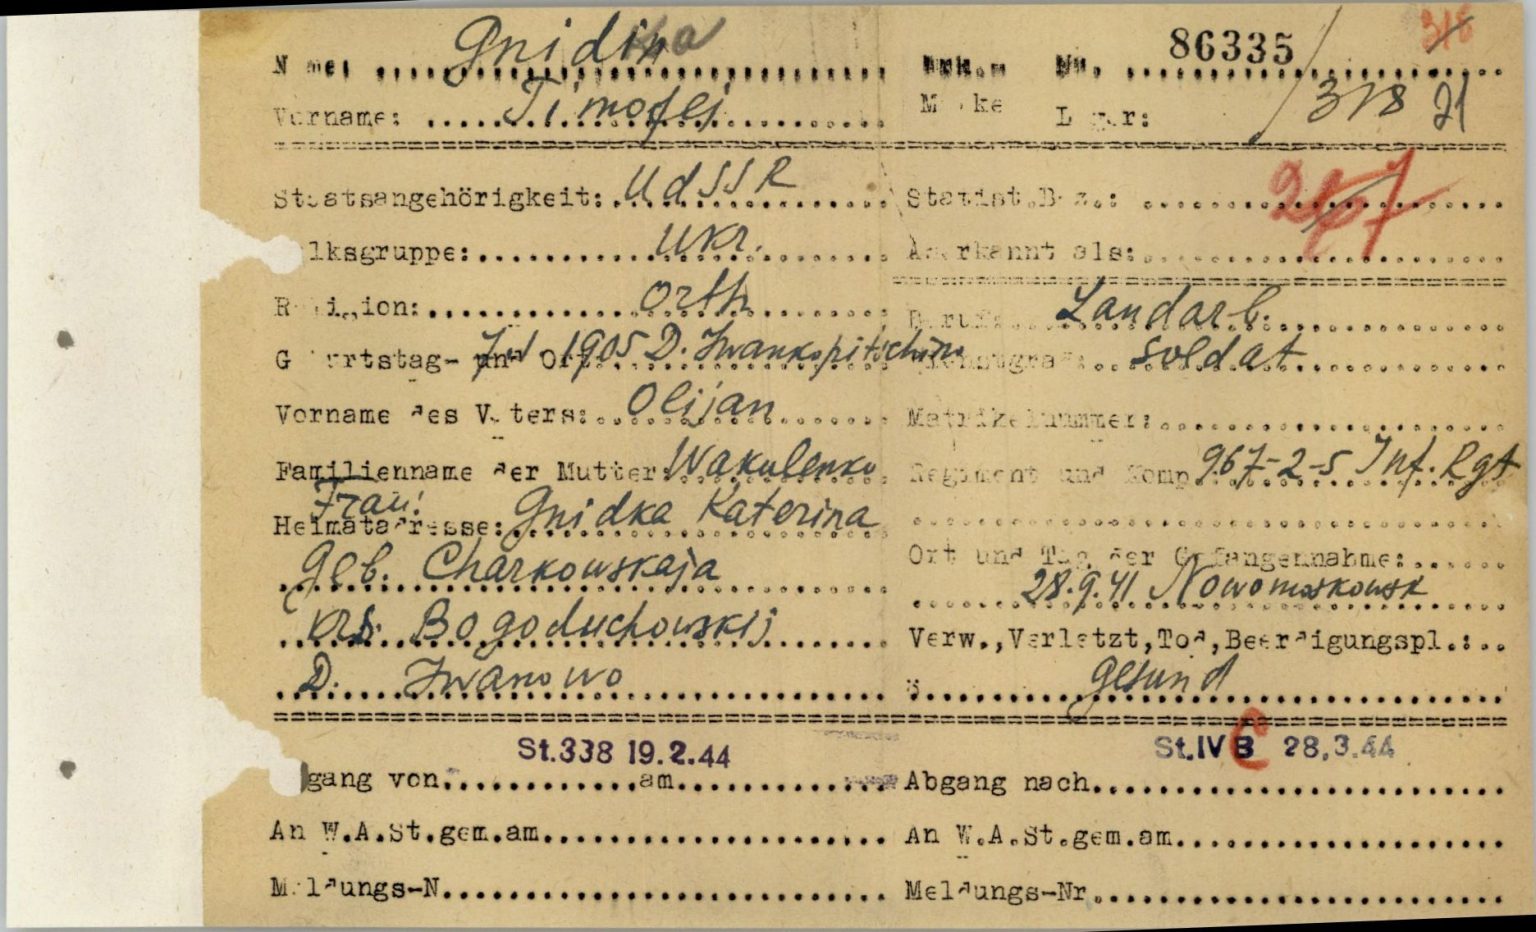 Name: Gnidin ka Erk. M. Nr. 86335 318
Vorname: Timofej Marke Lager: / 318 21
Staatsangehörigkeit: UdSSR Statist. Bez.: 267
Volksgruppe: Ukr. Anerkannt als:
Religion: Orth Beruf: Landarb.
Geburtstag- und Ort: 1905 D. Iwankopitschino Dienstgrad: Soldat
Vorname des Vaters: Olijan Matrikelnummer:
Familienname der Mutter: Wakulenko Regiment und Komp. 967-2-5 Inf. Rgt
Frau!
Heimatadresse: Gnidka Katerina
geb. Charkowskaja Ort und Tag der Gefangennahme:
Krs. Bogoduchowskij 28.9.41 Nowomoskowsk
Verw., Verletzt, Tod, Beerdigungspl.:
D. Iwanowo gesund
St.338 19.2.44 St.IV B C 28.3.44
gang von am Abgang nach
An W.A.St.gem.am An W.A.St.gem.am
Meldungs-N Meldungs-Nr.